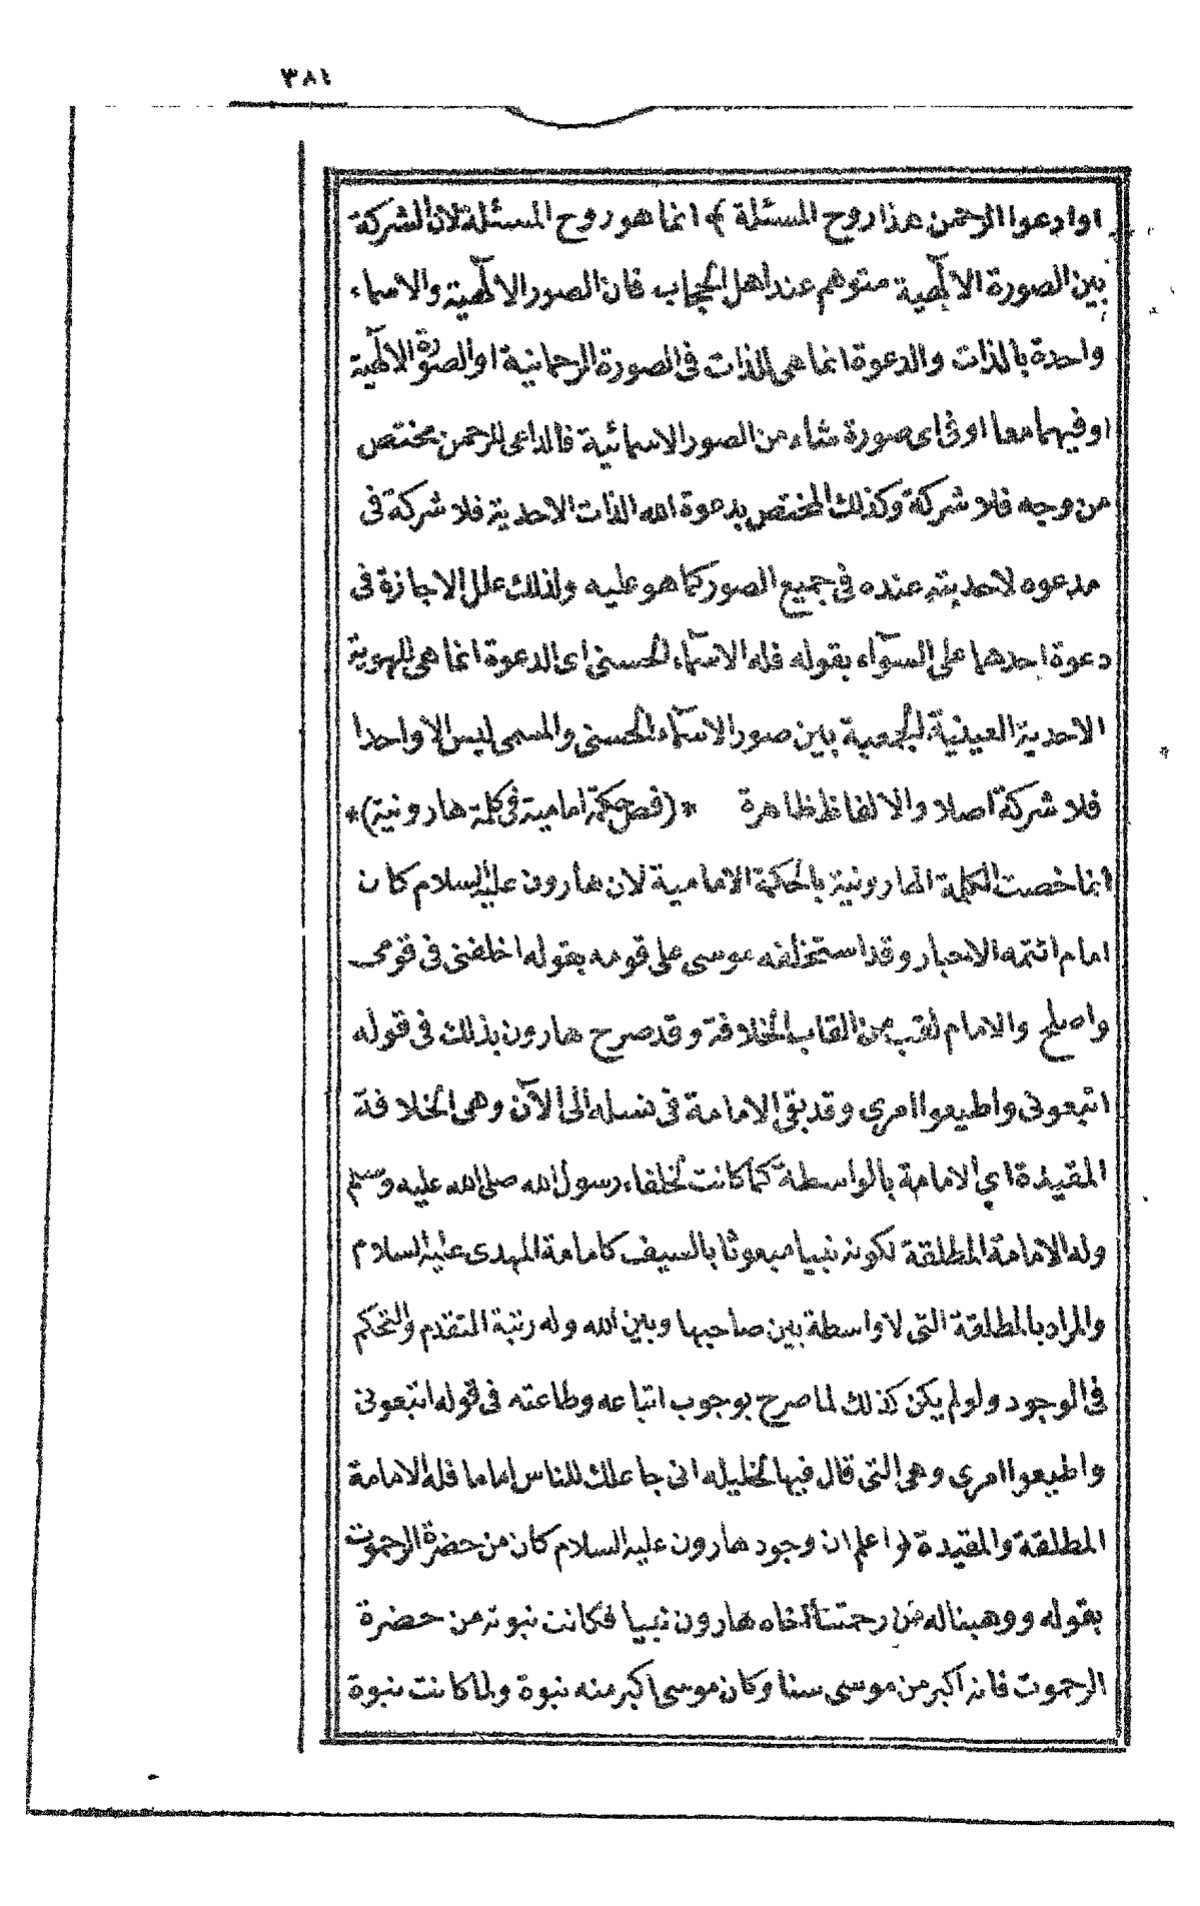 ٣٨١
او ادعوا الرحمن هذا روح المسئلة ﴾ انما هو روح المسئلة لان الشركة
بين الصورة الالٓهية متوهم عند اهل الحجاب فان الصور الالٓهية والاسماء
واحدة بالذات والدعوة انما هى للذات فى الصورة الرحمانية او الصورة الالٓهية
او فيهما معا او فى اى صورة شاء من الصور الاسمائية فالداعى للرحمن مختص
من وجه فلا شركة وكذلك المختص بدعوة الله الذات الاحدية فلا شركة فى
مدعوه لاحديته عنده فى جميع الصور كما هو عليه ولذلك علل الاجازة فى
دعوة احدهما على السوآء بقوله فله الاسمآء الحسنى اى الدعوة انما هى للهوية
الاحدية العينية الجمعية بين صور الاسمآء الحسنى والمسمى ليس الا واحدا
فلا شركة اصلا والالفاظ ظاهرة * (فص حكمة امامية فى كلمة هارونية) *
انما خصت الكلمة الهارونية بالحكمة الامامية لان هارون عليه السلام كان
امام ائتمه الاحبار وقد استخلفه موسى على قومه بقوله اخلفنى فى قومى
واصلح والامام لقب من القاب الخلافة وقد صرح هارون بذلك فى قوله
اتبعونى واطيعوا امرى وقد بقى الامامة فى نسله الى الآن وهى الخلافة
المقيدة اى الامامة بالواسطة كما كانت لخلفاء رسول الله صلى الله عليه وسلم
وله الامامة المطلقة لكونه نبيا مبعوثا بالسيف كامامة المهدى عليه السلام
والمراد بالمطلقة التى لا واسطة بين صاحبها وبين الله وله رتبة التقدم والتحكم
فى الوجود ولو لم يكن كذلك لما صرح بوجوب اتباعه وطاعته فى قوله اتبعونى
واطيعوا امرى وهى التى قال فيها لخليله انى جاعلك للناس اماما فله الامامة
المطلقة والمقيدة ﴿ واعلم ان وجود هارون عليه السلام كان من حضرة الرحموت
بقوله ووهبنا له من رحمتنا اخاه هارون نبيا فكانت نبوته من حضرة
الرحموت فانه اكبر من موسى سنا وكان موسى اكبر منه نبوة ولما كانت نبوة